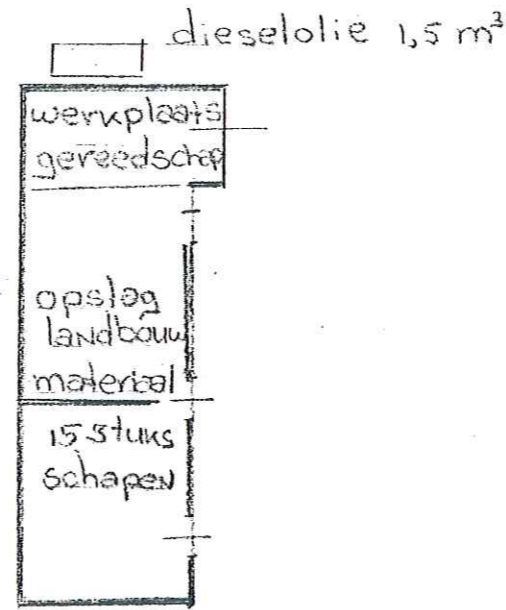 dieselolie 1,5 m³
werkplaats
gereedschap
opslag
landbouw
materiaal
15 stuks
schapen